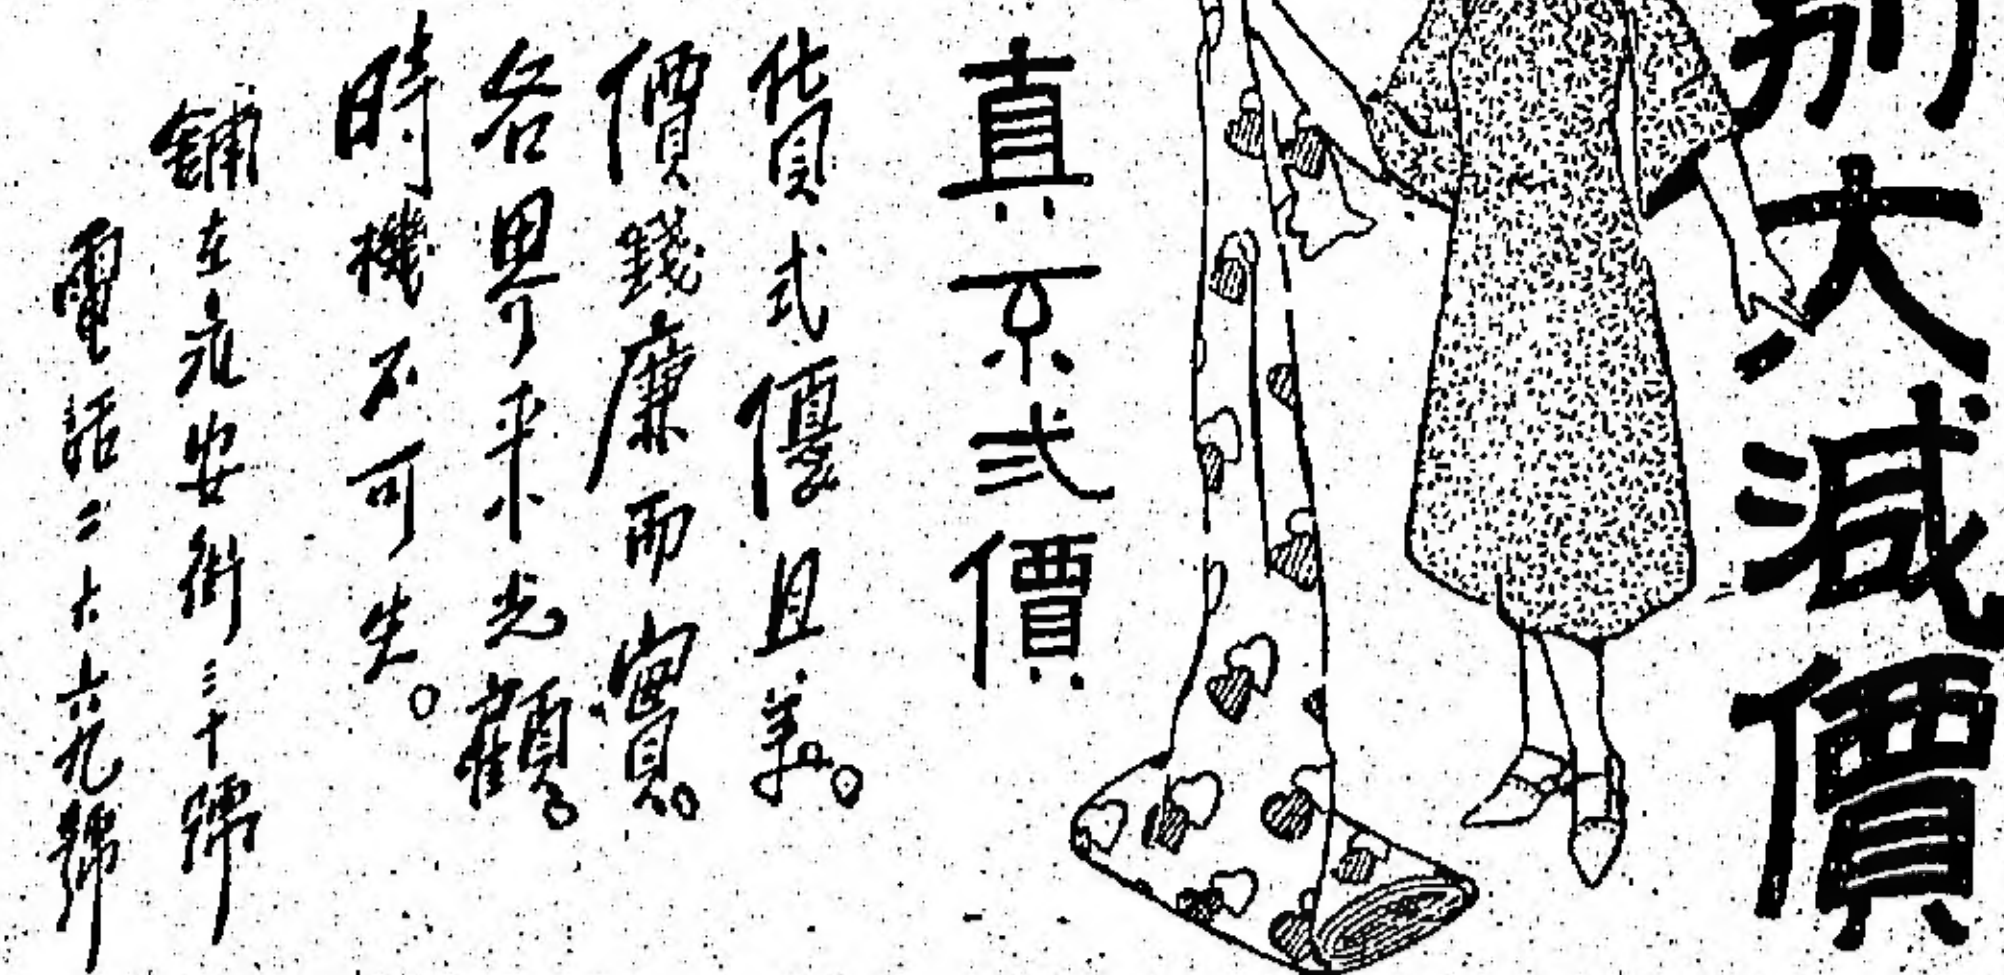 別大減價
真不弍價
貨式優且美。
價錢廉而實。
各界乎來光顧。
時機不可失。
鋪在永安街三十號
電話二六六九號